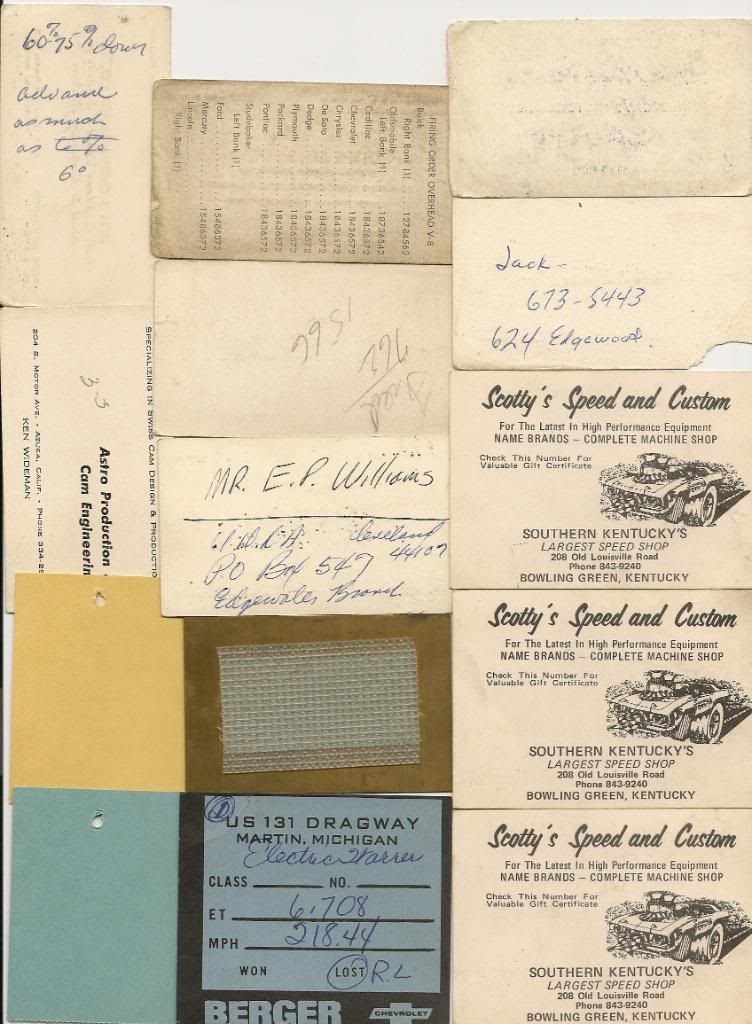 60% 75% down
advance
as much
as
6°
SPECIALIZING IN SWISS CAM DESIGN & PRODUCTIO
3.3
Astro Production
Cam Engineerin
204 S. MOTOR AVE. - AZUSA, CALIF. - PHONE 334-25
KEN WIDEMAN
FIRING ORDER OVERHEAD V-8
Buick
Right Bank (1) 12784563
Oldsmobile
Left Bank (1) 18736542
Cadillac 18436572
Chevrolet 18436572
Chrysler 18436572
De Soto 18436572
Dodge 18436572
Plymouth 18436572
Packard 18436572
Pontiac 18436572
Studebaker
Left Bank (1) 18436572
Ford 15486372
Mercury 15486372
Lincoln 15486372
Right Bank (1)
1566
762
MR. E. P. Williams
Cleveland
44107
P.O Box 547
Edgewater Branch
US 131 DRAGWAY
MARTIN, MICHIGAN
Electric Warrer
CLASS NO.
ET 6.708
MPH 218.44
WON LOST R.L
BERGER CHEVROLET
Jack-
673-5443
624 Edgewood.
Scotty's Speed and Custom
For The Latest In High Performance Equipment
NAME BRANDS – COMPLETE MACHINE SHOP
Check This Number For
Valuable Gift Certificate
SOUTHERN KENTUCKY'S
LARGEST SPEED SHOP
208 Old Louisville Road
Phone 843-9240
BOWLING GREEN, KENTUCKY
Scotty's Speed and Custom
For The Latest In High Performance Equipment
NAME BRANDS – COMPLETE MACHINE SHOP
Check This Number For
Valuable Gift Certificate
SOUTHERN KENTUCKY'S
LARGEST SPEED SHOP
208 Old Louisville Road
Phone 843-9240
BOWLING GREEN, KENTUCKY
Scotty's Speed and Custom
For The Latest In High Performance Equipment
NAME BRANDS – COMPLETE MACHINE SHOP
Check This Number For
Valuable Gift Certificate
SOUTHERN KENTUCKY'S
LARGEST SPEED SHOP
208 Old Louisville Road
Phone 843-9240
BOWLING GREEN, KENTUCKY